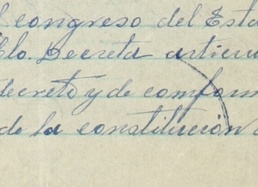 l congreso del Esta
blo. Decreta articu
decreto y de conform
de la constitución